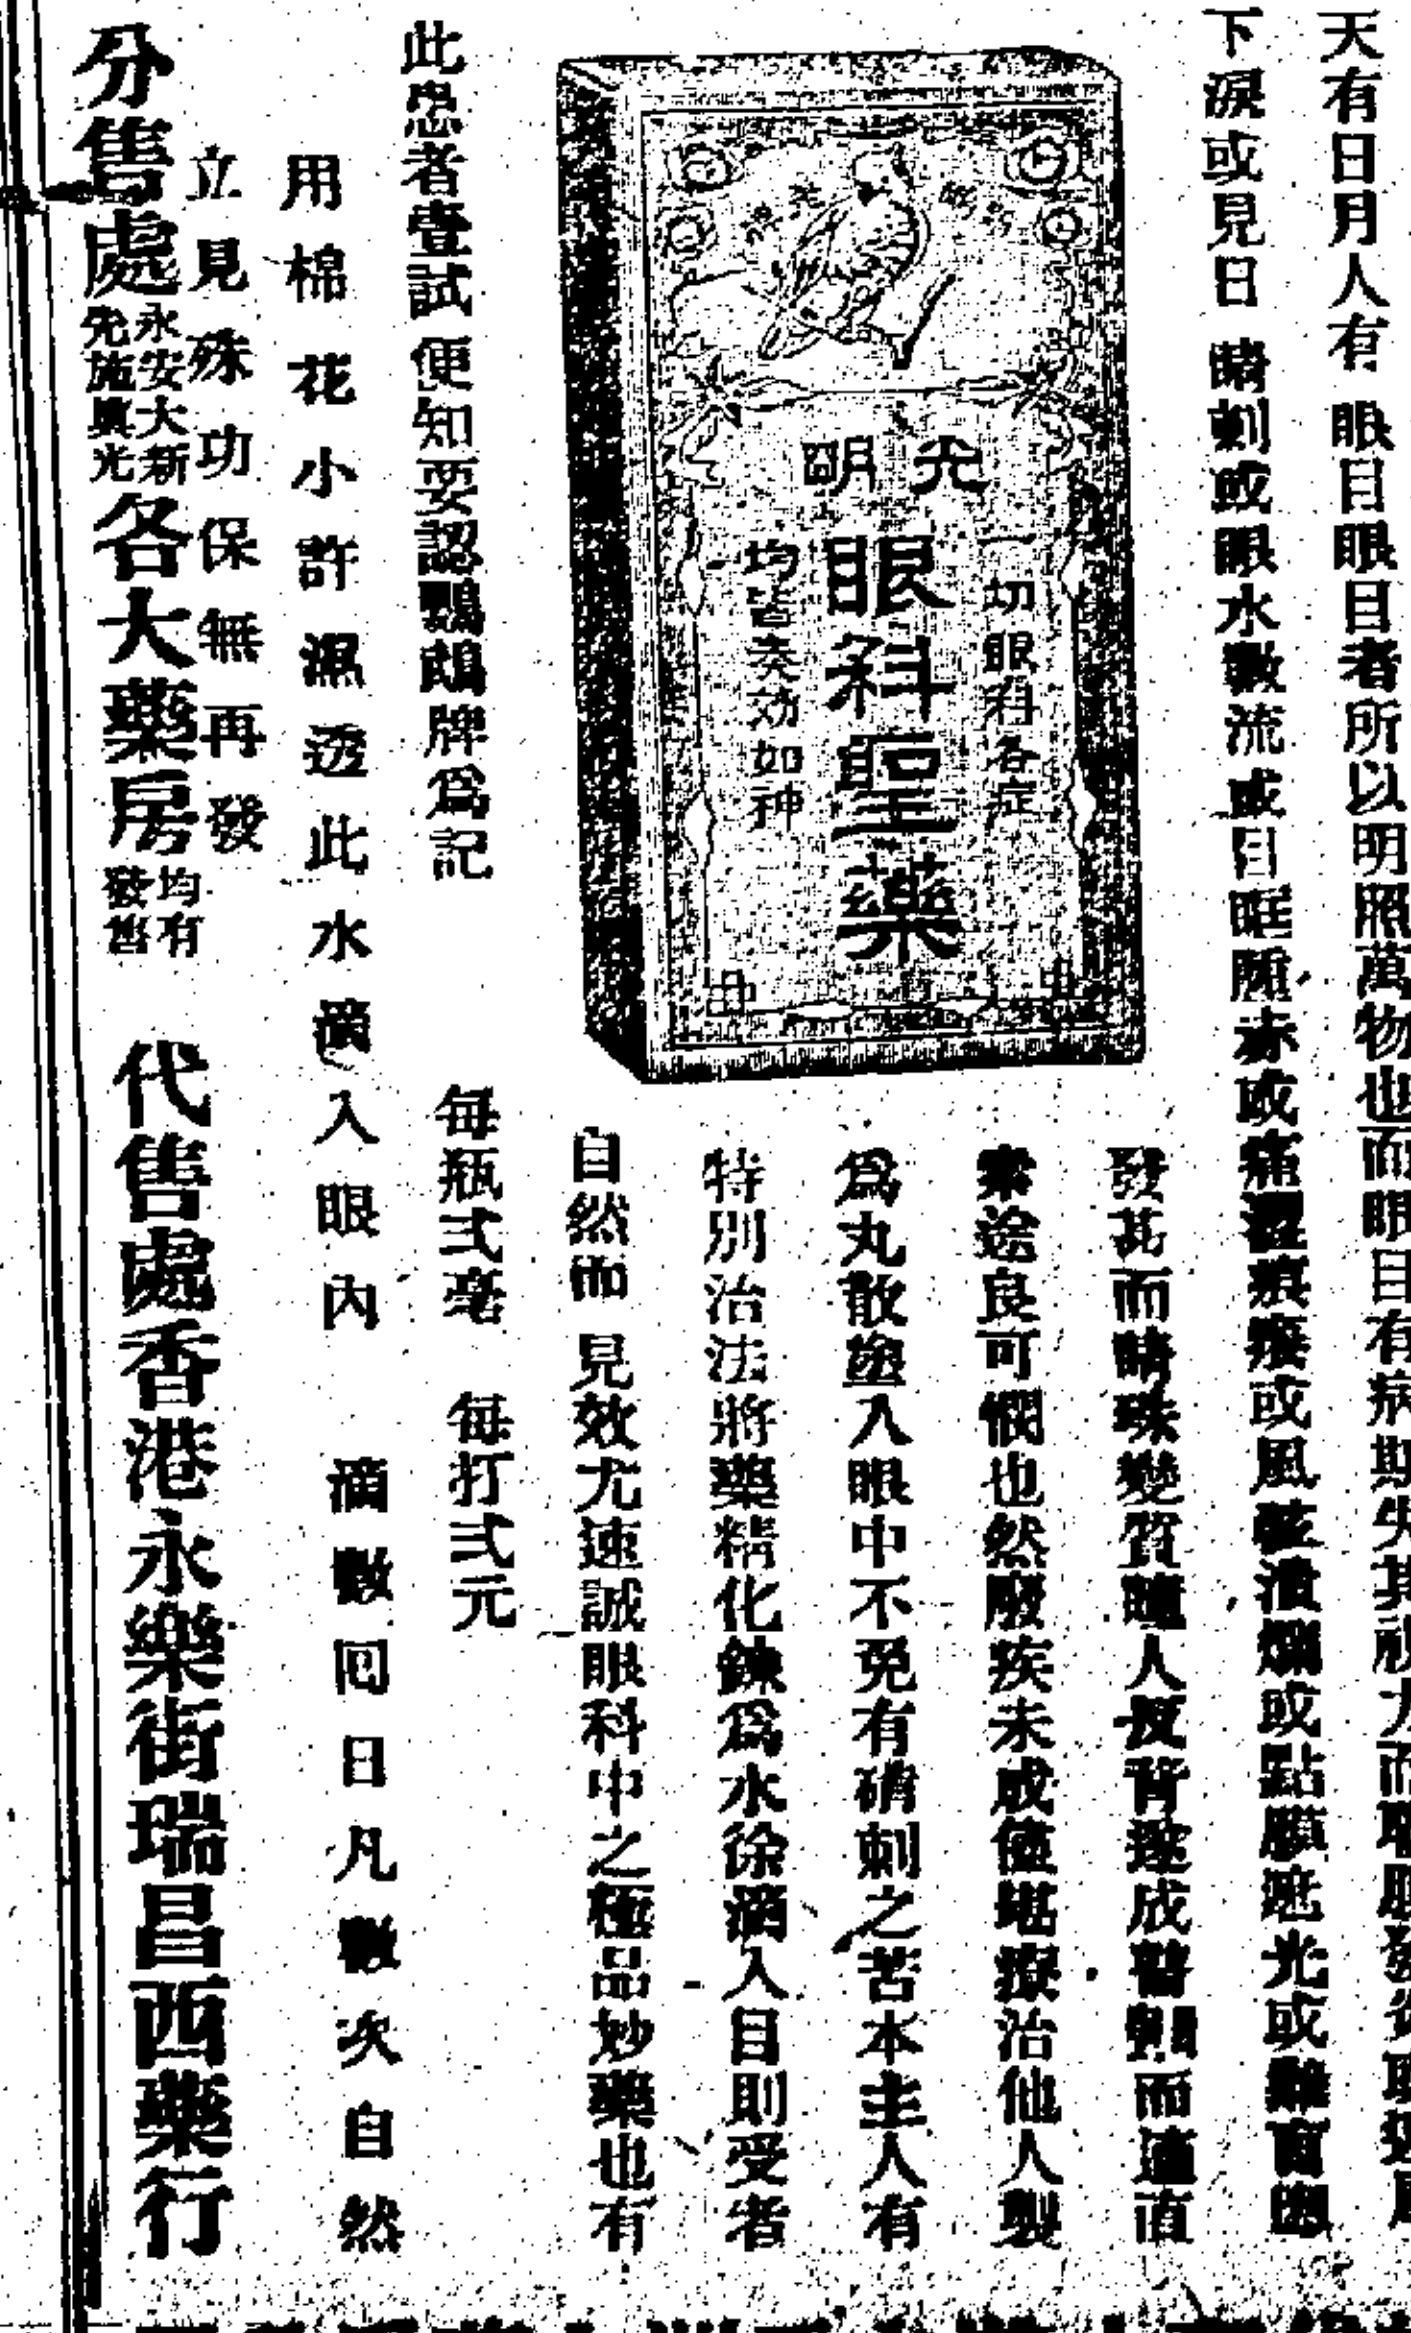 天有日月人有眼目眼目者所以明照萬物也而眼目有病期失其視力而
下淚或見日晴刺或眼水數流或目眶腫赤或痛澀痕癢或風弦潰爛或點膜遮光或雞盲
發其而睛珠變質瞳人反背遂成瞽 而適直
窮途良可憫也然廢疾未成僅堪療治他人製
爲丸散塗入眼中不免有硝刺之苦本主人有
特別治法將藥精化鍊爲水徐滴入目則受者
自然而見效尤速誠眼科中之極品妙藥也有
光明
一切眼科各症
眼科聖藥
均皆奏効如神
此患者壹試便知要認鸚鵡牌爲記
每瓶弍毫 每打弍元
用棉花小許濕透此水滴入眼內 滴數囘日凡數次自然
立見殊功保無再發
分售處永安大新先施真光各大藥房均有發售 代售處香港永樂街瑞昌西藥行